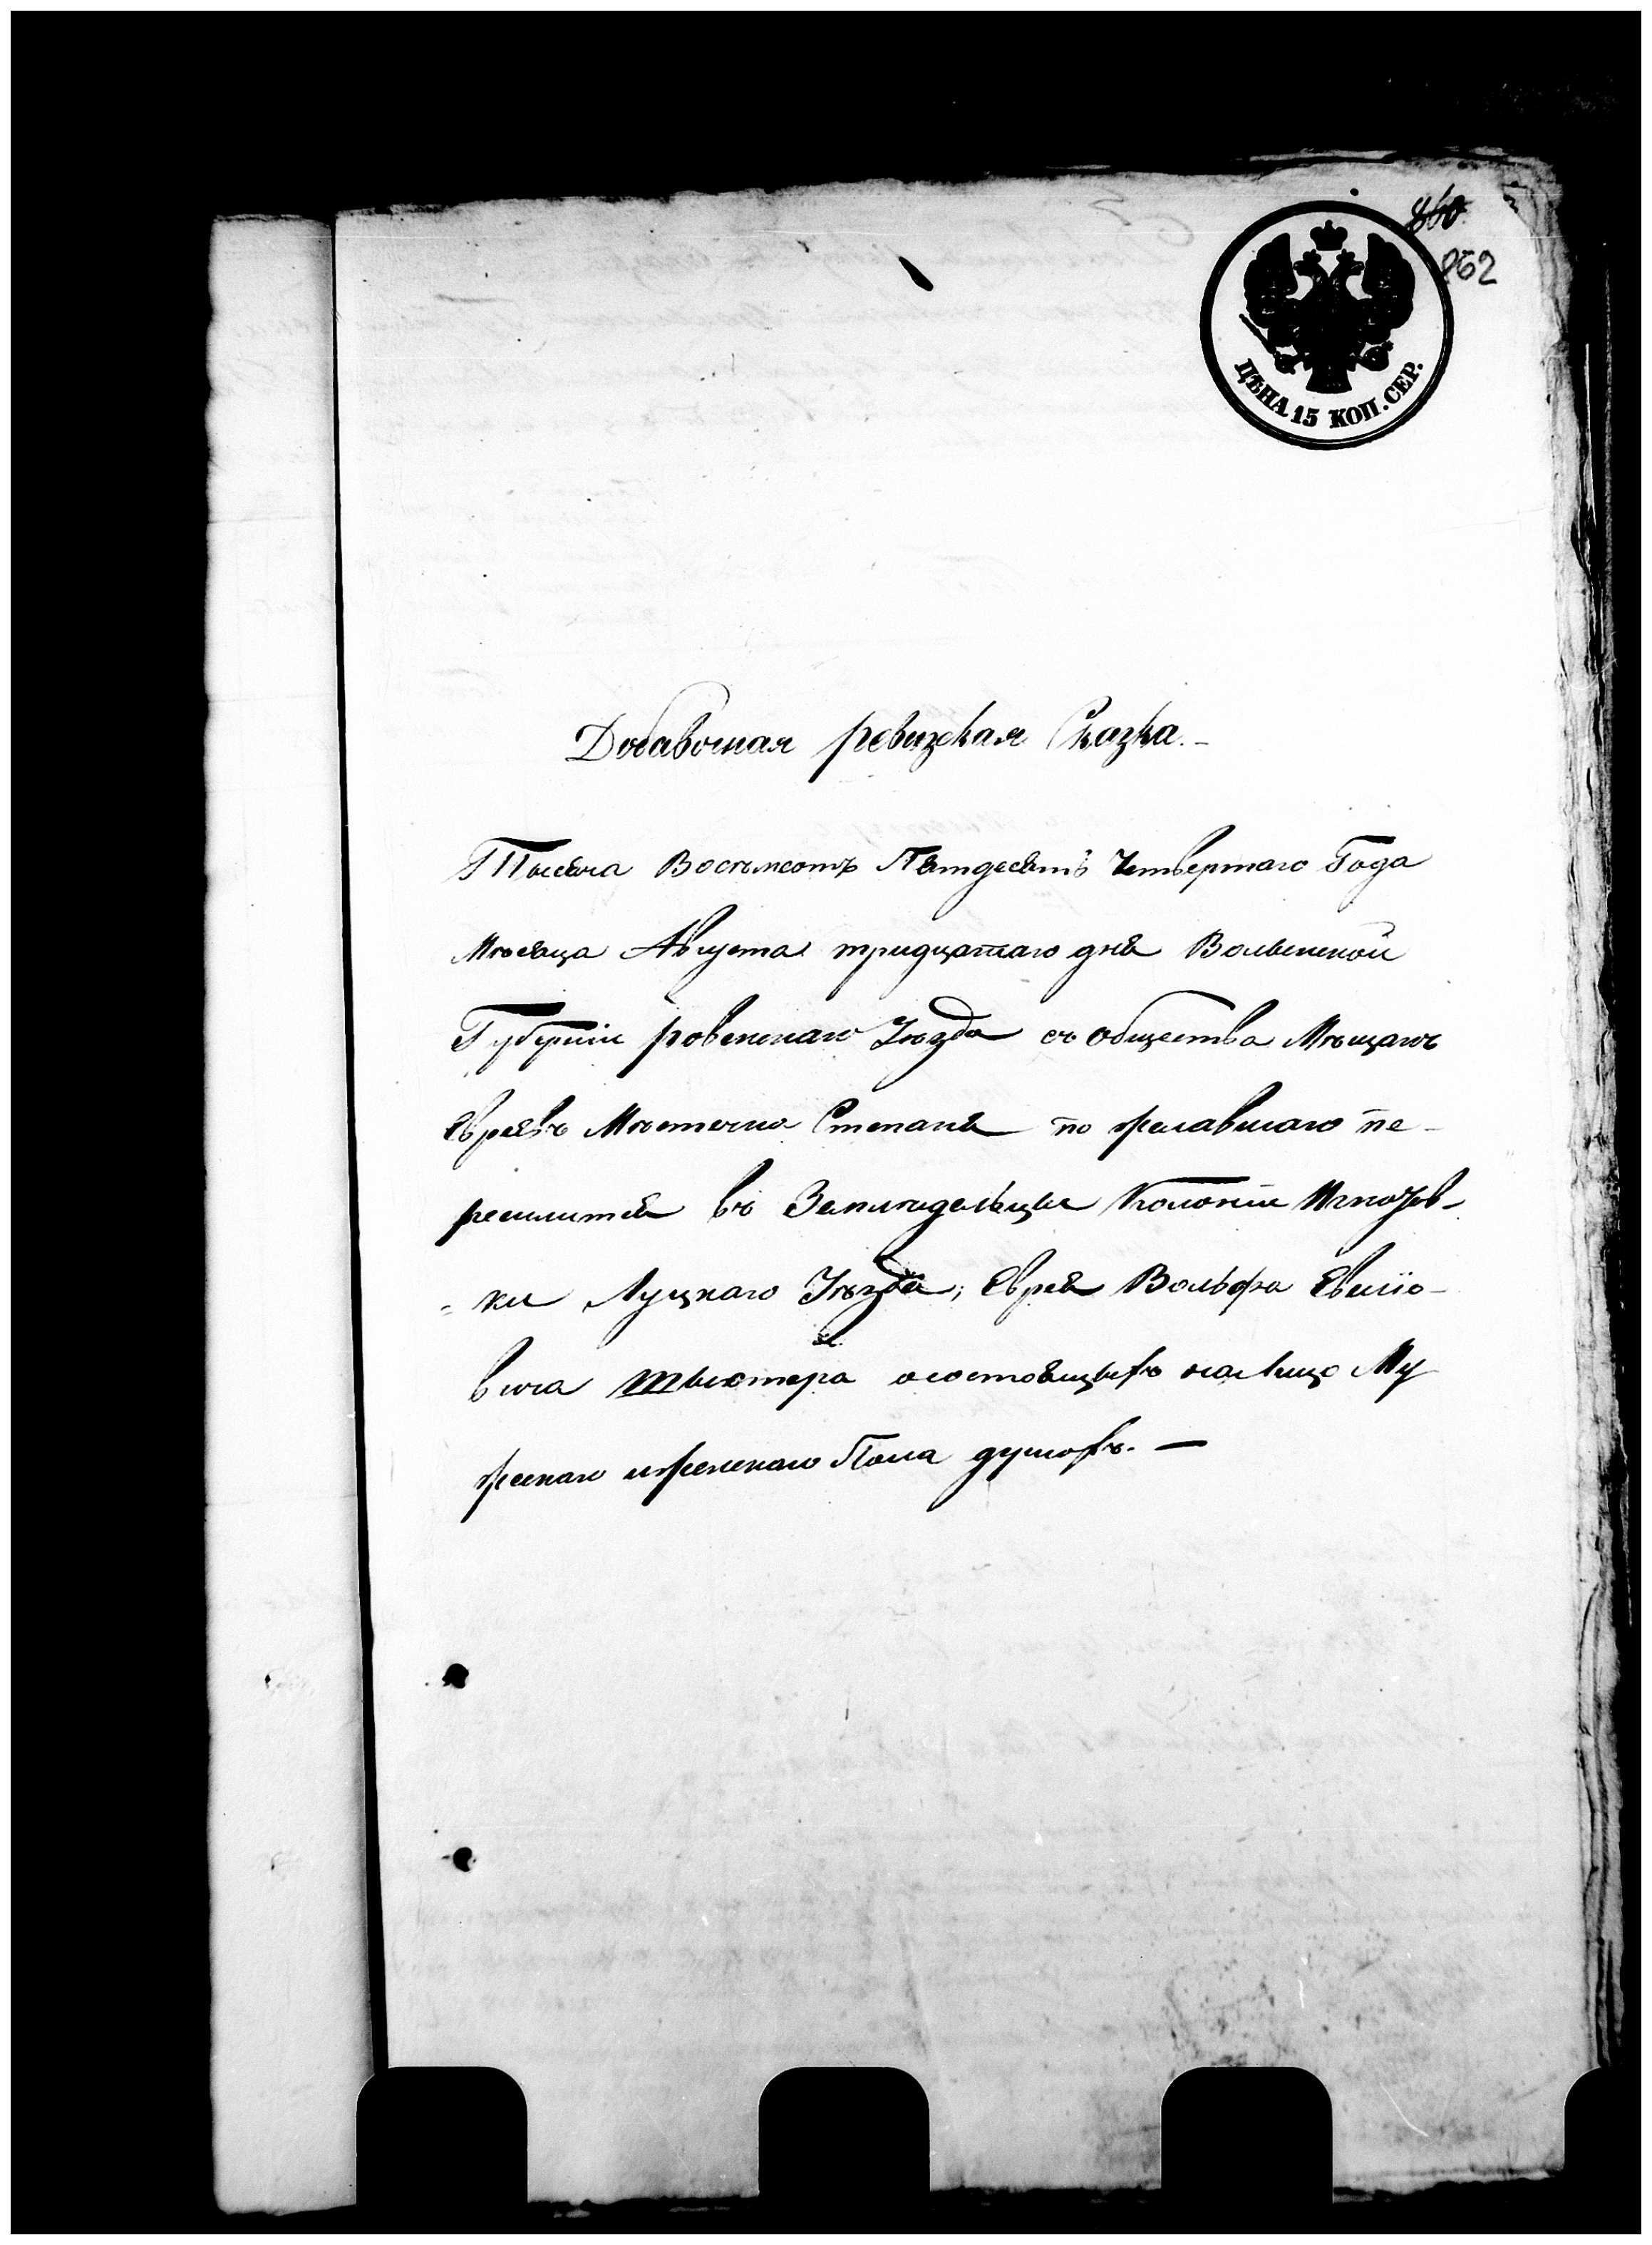 860
862
ЦѢНА 15 КОП. СЕР.
Добавочная ревизская Сказка.-
Тысеча Восемсотъ Пятдесятъ Четвертаго Года
Мѣсяца Августа тридцатаго дня Волынской
Губерніи ровенскаго Уѣзда съ общества Мѣщанъ
Евреевъ Мѣстечка Степаня по желавшаго пе-
реелитя въ Земледельцы Колоніи
ки Луцкаго Уѣзда, Еврея Вольфа
вича осостоящыхъ на лицо Му
жескаго иженскаго Пола душахъ. —